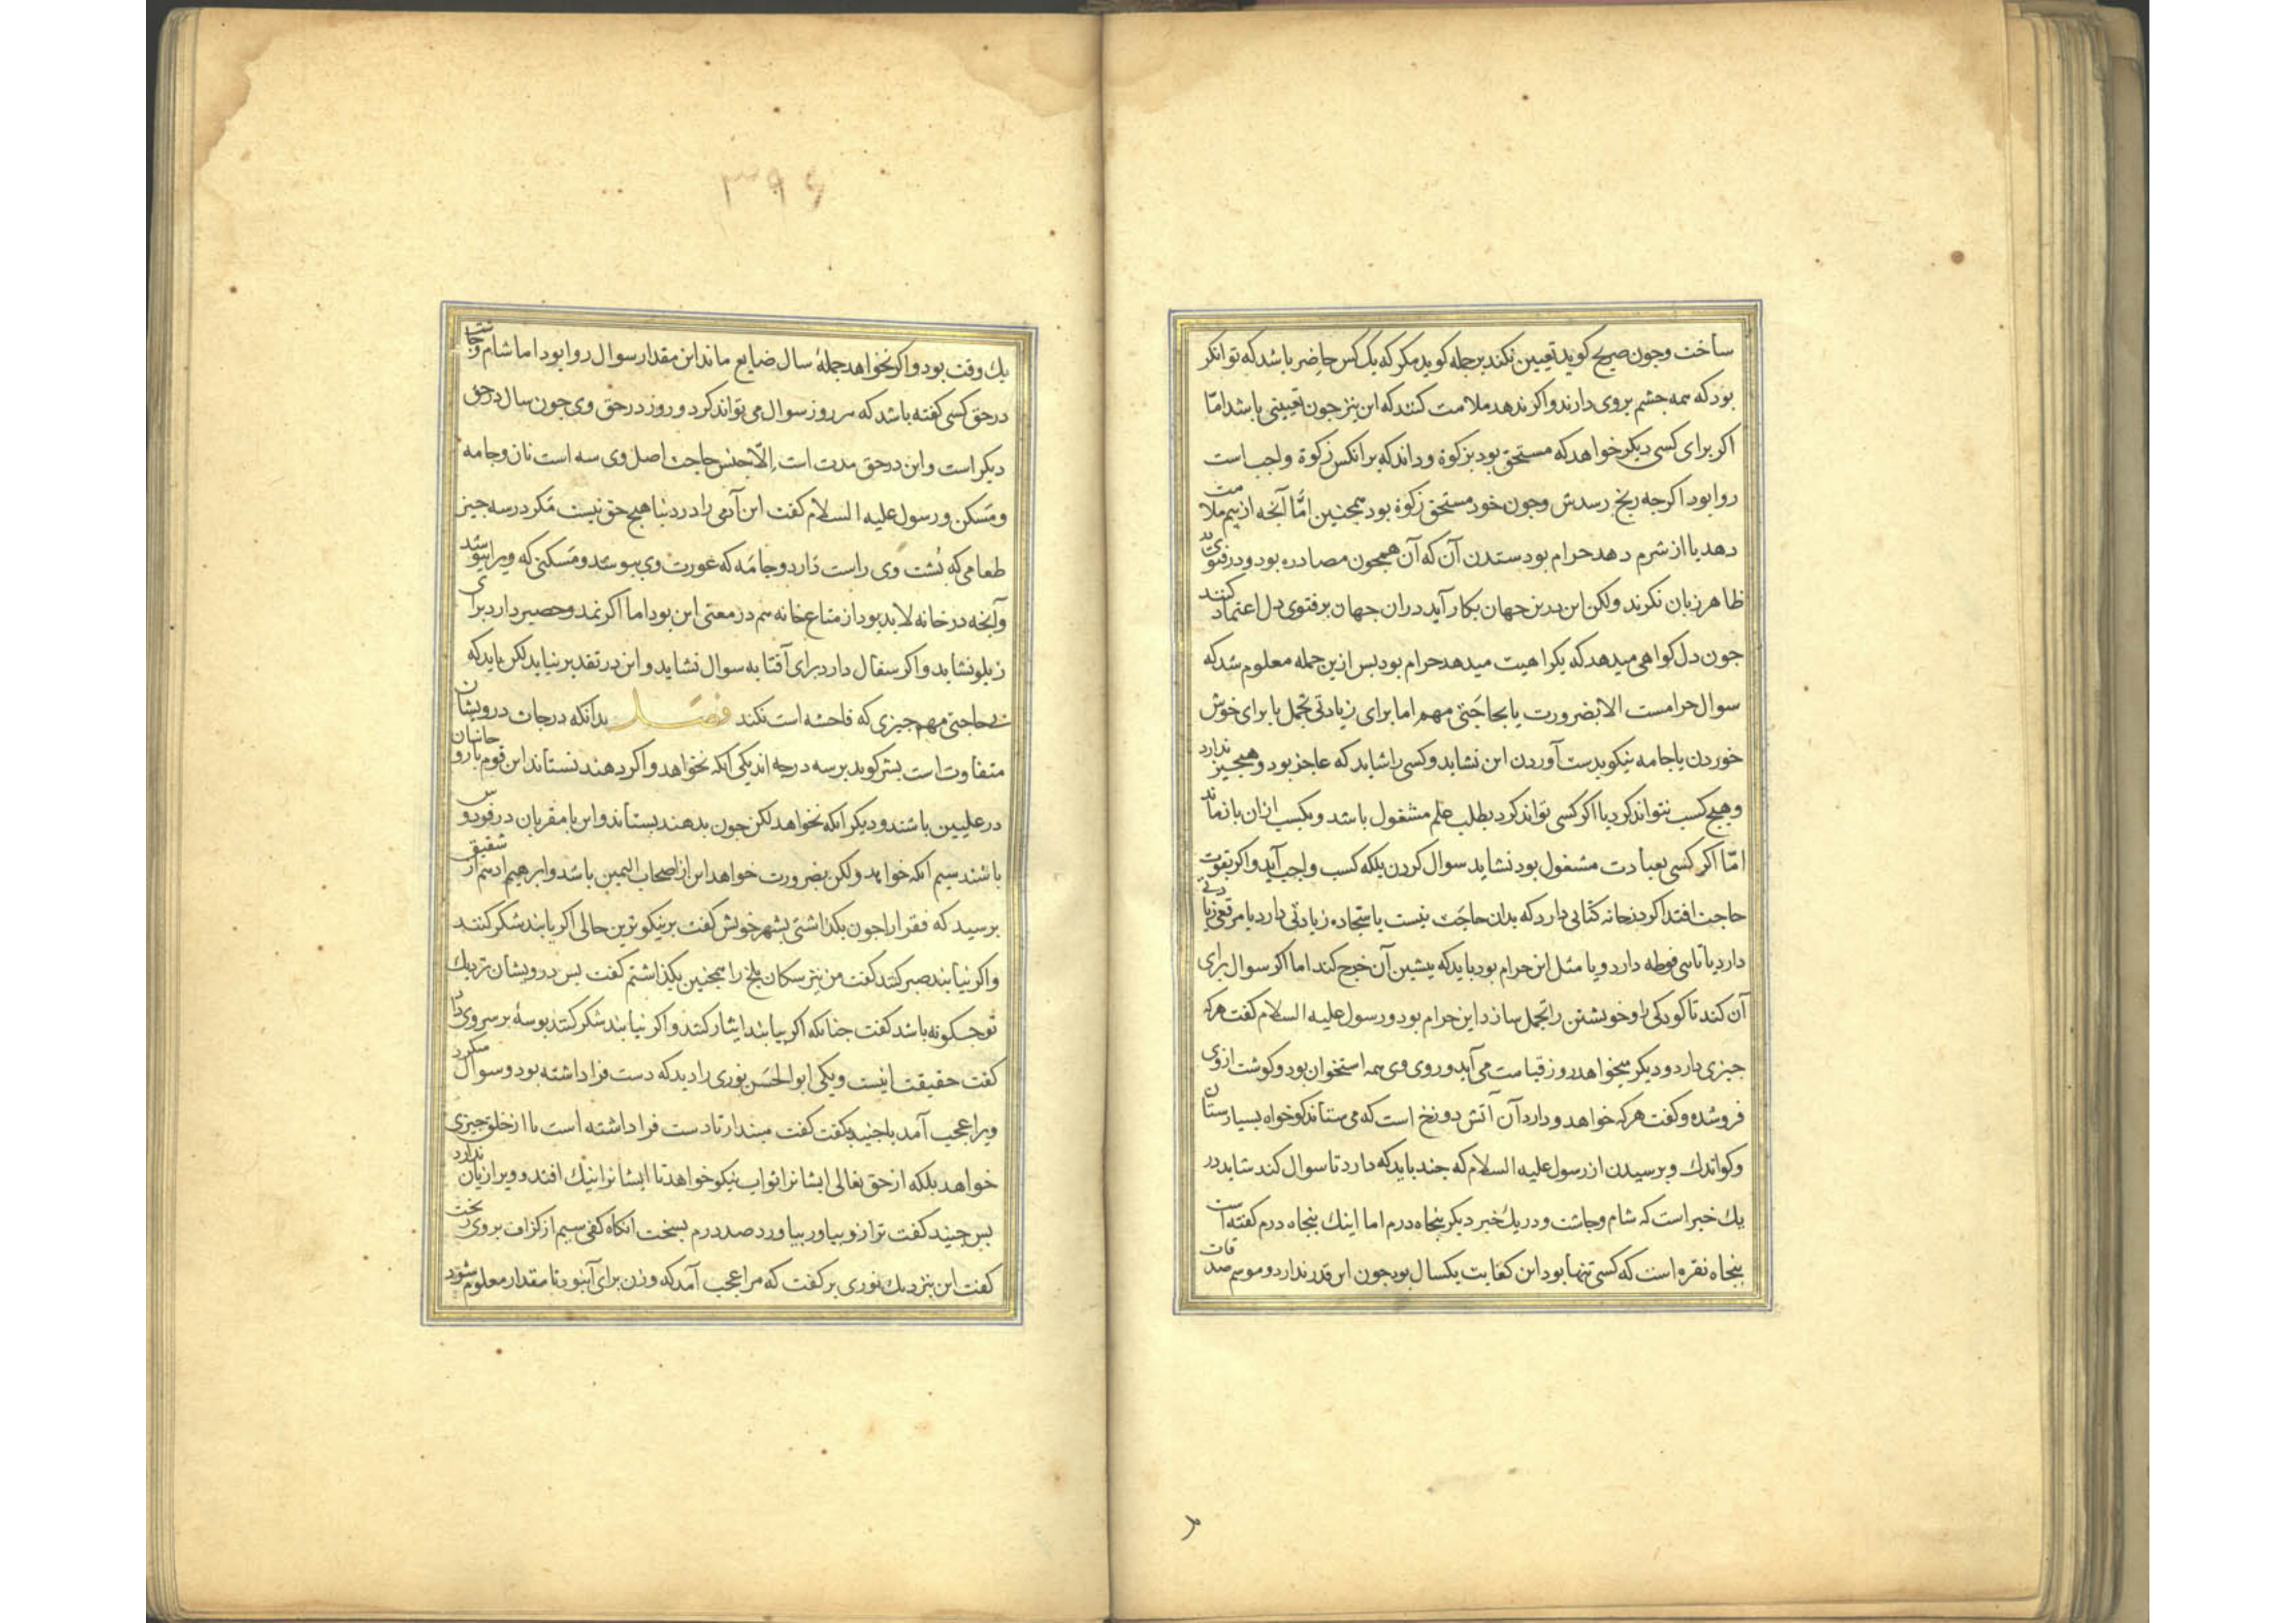 ساخت وجون صریح کوید تعیین نکند بر جمله کوید مکر که یک کس حاضر باشد که توانکر
بود که همه جشم بر وی دارند واکر ندهد ملامت کنند که این نیز جون تعیینی باشد امّا
اکر برای کسی دیکر خواهد که مستحق بود بزکوة وداند که بر انکس زکوة واجب است
روا بود اکرجه رنج رسدش وجون خود مستحق زکوة بود همجنین امّا آنجه از بیم ملامت
دهد یا از شرم دهد حرام بود ستدن آن که آن همجون مصادره بود ودر فتوی
ظاهر زبان نکرند ولکن این درین جهان بکار آید دران جهان بر فتوی دل اعتماد کنند
جون دل کواهی میدهد که بکراهیت میدهد حرام بود بس ازین جمله معلوم شد که
سوال حرامست الا بضرورت یا بحاجتی مهم اما برای زیادتی تجمل یا برای خوش
خوردن یا جامه نیکو بدست آوردن این نشاید وکسی را شاید که عاجز بود وهیج جیز ندارد
وهیج کسب نتواند کرد یا اکر کسی تواند کرد بطلب علم مشغول باشد وبکسب ازان باز ماند
امّا اکر کسی بعبادت مشغول بود نشاید سوال کردن بلکه کسب واجب آید واکر بقوت
حاجت افتد اکر در خانه کتابی دارد که بدان حاجت نیست یا سجاده زیادتی دارد یا مرقعی زیادتی
دارد یا تاسی فوطه دارد ویا مثل این حرام بود باید که بیشین آن خرج کند اما اکر سوال برای
آن کند تا کودکی را وخویشتن را تجمل سازد این حرام بود ورسول علیه السلام کفت هرکه
جیزی دارد ودیکر میخواهد روز قیامت می آید وروی وی همه استخوان بود وکوشت از وی
فروشده وکفت هرکه خواهد ودارد آن آتش دوزخ است که می ستاند کو خواه بسیار ستان
وکو اندک وبرسیدن از رسول علیه السلام که جند باید که دارد تا سوال کند شاید در
یک خبر است که شام وجاشت ودر یک خبر دیکر بنجاه درم اما اینک بنجاه درم کفته است
بنجاه نقره است که کسی تنها بود این کفایت یکسال بود جون این قدر ندارد وموسم صدقات
۳۹۶
یک وقت بود واکر نخواهد جملهٔ سال ضایع ماند این مقدار سوال روا بود اما شام وجاشت
در حق کسی کفته باشد که هر روز سوال می تواند کرد وروز در حق وی جون سال در حق
دیکر است واین در حق مدت است إلّا جنس حاجت اصل وی سه است نان وجامه
ومسکن ورسول علیه السلام کفت ابن آدمی را در دنیا هیج حق نیست مکر در سه جیز
طعامی که بشت وی راست دارد وجامه که عورت وی ببوشد ومسکنی که ویرا ببوشد
وآنجه در خانه لابد بود از متاع خانه هم در معنی این بود اما اکر نمد وحصیر دارد برای
زیلو نشاید واکر سفال دارد برای آفتابه سوال نشاید واین در تقدیر نیاید لکن باید که
بی حاجتی مهم جیزی که فاحشه است نکند فصل بدانکه درجات درویشان
متفاوت است بشر کوید بر سه درجه اند یکی آنکه نخواهد واکر دهند نستاند این قوم با روحانیان
در علیین باشند ودیکر انکه نخواهد لکن جون بدهند بستاند واین با مقربان در فردوس
باشند سیم انکه خواهد ولکن بضرورت خواهد این از اصحاب الیمین باشد وابرهیم ادهم از شقیق
برسید که فقرا را جون بکذاشتی بشهر خویش کفت بر نیکوترین حالی اکر یابند شکر کنند
واکر نیابند صبر کنند کفت من نیز سکان بلخ را همجنین بکذاشتم کفت بس درویشان نزدیک
تو جکونه باشد کفت جنانکه اکر بیابند ایثار کنند واکر نیابند شکر کنند بوسهٔ بر سر وی داد
کفت حقیقت اینست ویکی ابو الحسن نوری را دید که دست فرا داشته بود وسوال میکرد
ویرا عجب آمد با جنید بکفت کفت مبندار تا دست فرا داشته است تا از خلق جیزی
خواهد بلکه از حق تعالی ایشانرا ثواب نیکو خواهد تا ایشانرا نیک افتد وویرا زیان ندارد
بس جنید کفت ترازو بیاور بیاورد صد درم بسخت انکاه کفی سیم از کزاف بر وی ریخت
کفت این بنزدیک نوری بر کفت که مرا عجب آمد که وزن برای آن بود تا مقدار معلوم شود